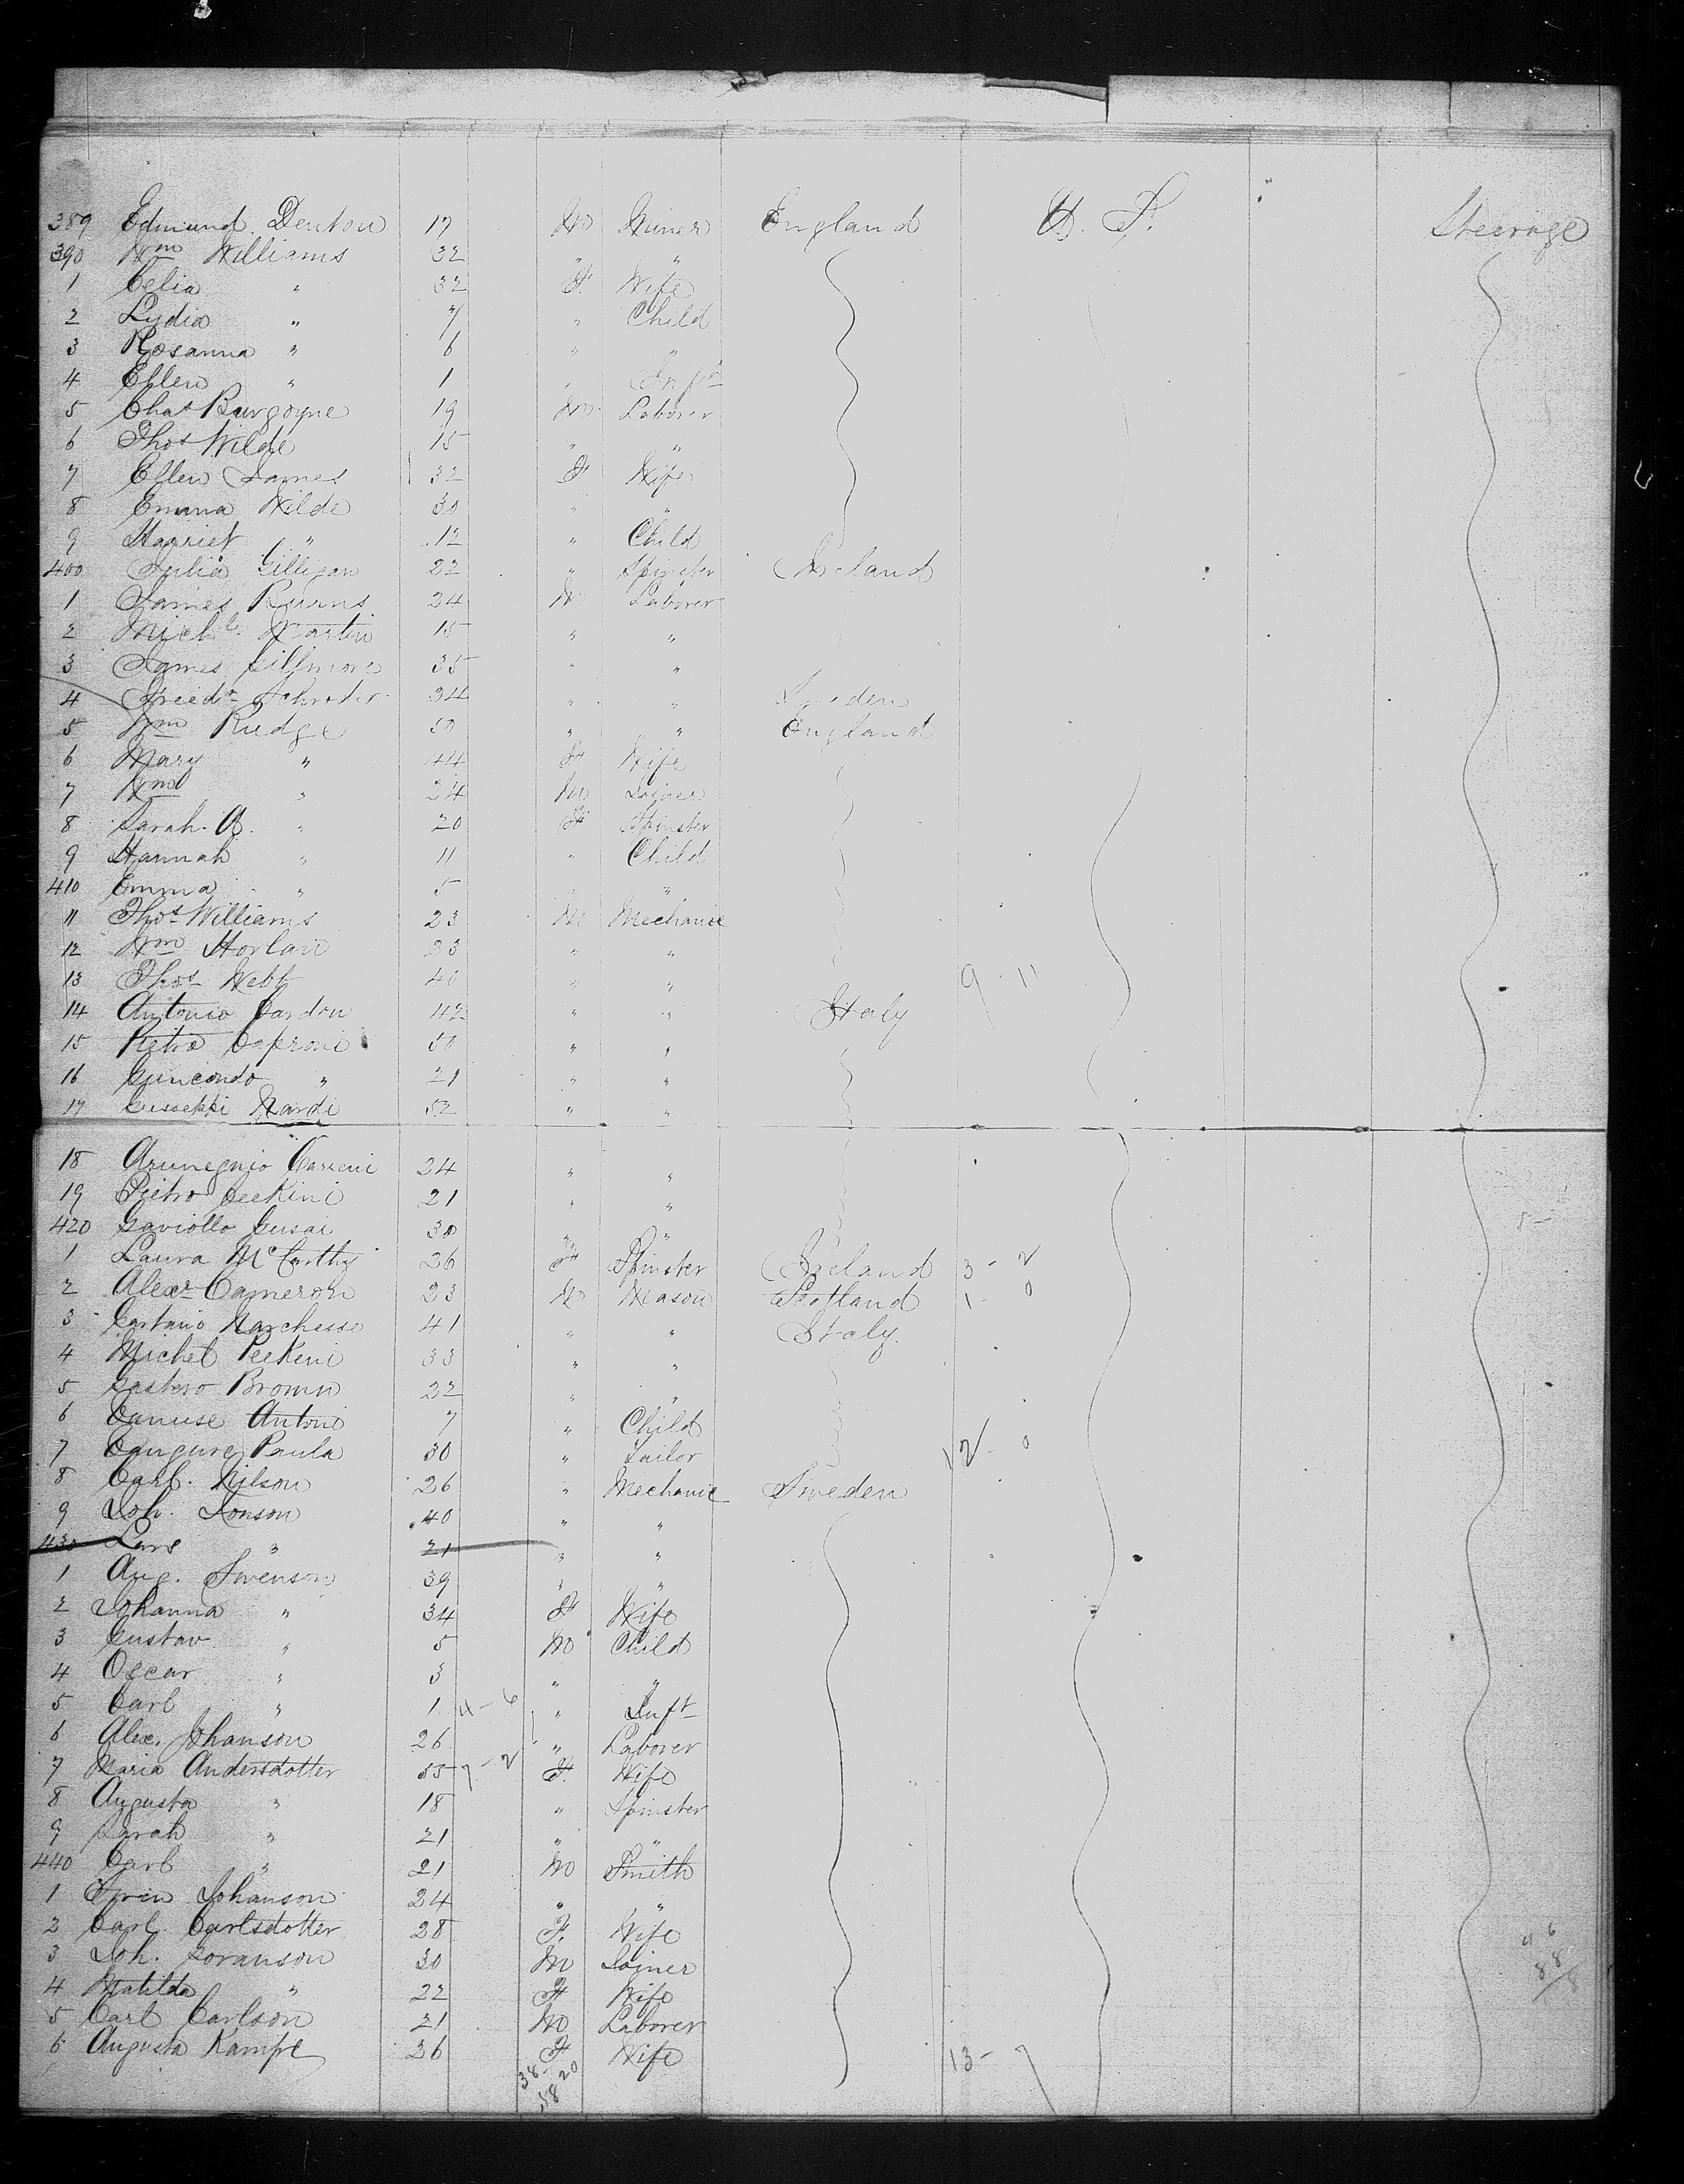 389 Edmund Denton 17 M Miner England U. S. Steerage
390 Wm Williams 32 " "
1 Celia " 32 F Wife
2 Lydia " 7 " Child
3 Rosanna " 6 " "
4 Ellen " 1 " Inft
5 Chas Burgoyne 19 M Laborer
6 Thos Wilde 15 " "
7 Ellen James 32 F Wife
8 Emma Wilde 30 " "
9 Harriet " 12 " Child
400 Julia Gilligan 22 " Spinster Ireland
1 James Burns 34 M Laborer
2 Michl. Martin 15 " "
3 James Gillmore 35 " "
4 Freedr Schroder 34 " " Sweden
5 Wm Rudge 50 " " England
6 Mary " 44 F Wife
7 Wm " 24 M Joiner
8 Sarah. A. " 20 F Spinster
9 Hannah " 11 " Child
410 Emma " 5 " "
11 Thos Williams 23 M Mechanic
12 Wm Horlan 33 " "
13 Thos Webb 40 " " 9 - 11
14 Antonio Cardon 42 " " Italy
15 Pietro Caproni 50 " "
16 Giuncondo " 21 " "
17 Gusseppi Nardi 52 " "
18 Arunegnio Carreni 24 " "
19 Pietro Ceekini 21 " "
420 Gaviollo Cusai 30 " "
1 Laura McCarthy 26 F Spinster Ireland 3 - 2
2 Alexr Cameron 23 M Mason Scotland 1 - 0
3 Cartano Marchesse 41 " " Italy.
4 Michel Peekini 33 " "
5 Gastero Brown 22 " "
6 Canuse Antoni 7 " Child
7 Caugure Paula 30 " Tailor 12 - 0
8 Carl. Nilson 26 " Mechanic Sweden
9 Joh. Jonson 40 " "
430 Lars " 21 " "
1 Aug. Swenson 39 " "
2 Johanna " 34 F Wife
3 Gustav " 5 M Child
4 Oscar " 3 " "
5 Carl " 1 4 - 6 " Inft
6 Alex. Johanson 26 " Laborer
7 Maria Andersdotter 55 7 - 2 F. Wife
8 Augusta " 18 " Spinster
9 Sarah " 21 " "
440 Carl " 21 M Smith
1 Sven Johanson 24 " "
2 Carl. Carlsdotter 28 F. Wife
3 Joh. Goranson 30 M Joiner
4 Matilda " 22 F Wife
5 Carl Carlson 21 M Laborer
6 Augusta Kampe 36 F Wife 13 - 7
38 - 20
58